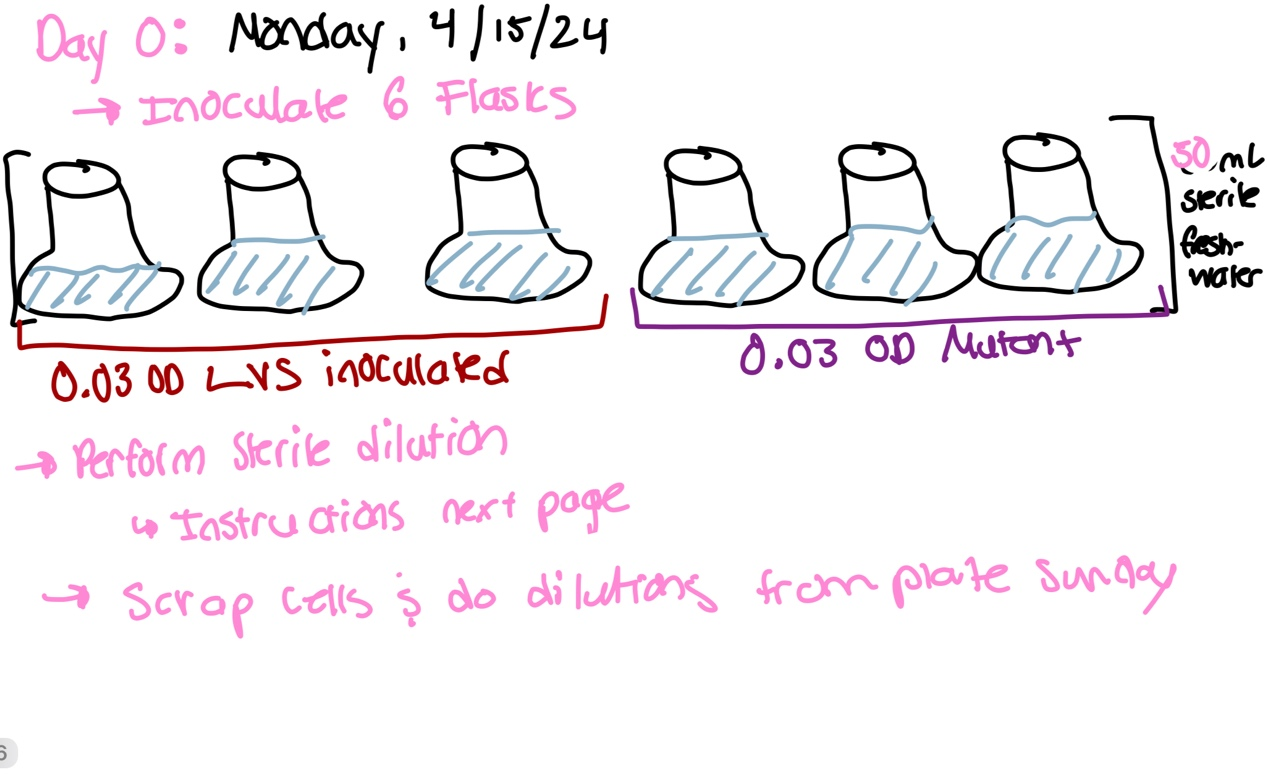 Day 0: Monday, 4/15/24
→ Inoculate 6 Flasks
50 mL
sterile
fresh-
water
0.03 OD LVS inoculated
0.03 OD Mutant
→ Perform Sterile dilution
↳ Instructions next page
→ Scrap cells & do dilutions from plate Sunday
6